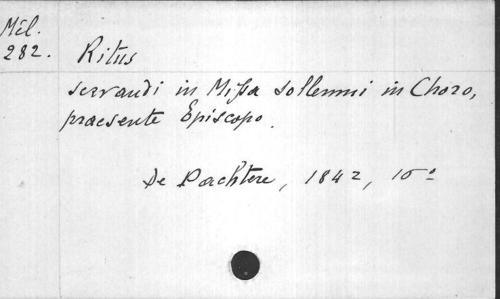 Mél.
282.
Ritus
servandi in Missa sollemni in Choro,
praesente Episcopo.
De Pachtere, 1842, 10°